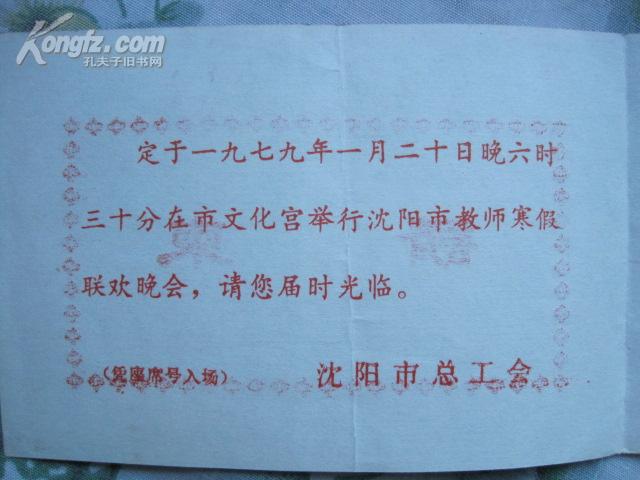 Kongfz.com
孔夫子旧书网
定于一九七九年一月二十日晚六时
三十分在市文化宫举行沈阳市教师寒假
联欢晚会，请您届时光临。
（凭座席号入场）
沈阳市总工会